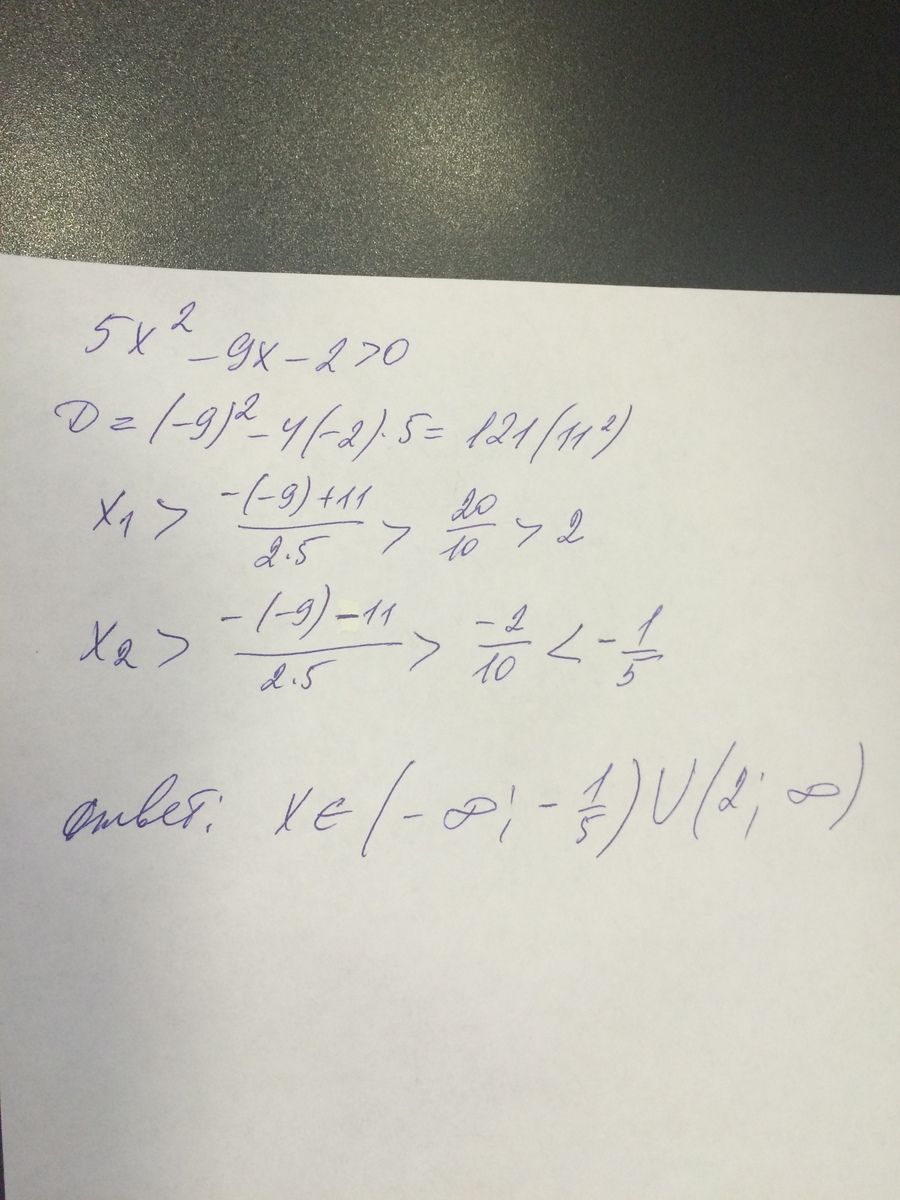 5x² - 9x - 2 > 0
D = (-9)² - 4(-2)·5 = 121 (11²)
x₁ > -(-9)+11 / 2·5 > 20/10 > 2
x₂ > -(-9)-11 / 2·5 > -2/10 < -1/5
ответ: x ∈ (-∞; -1/5) ∪ (2; ∞)